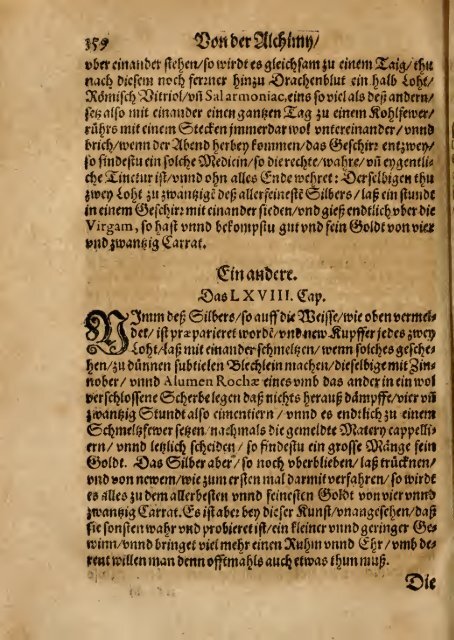 359 Von der Alchimy/
vber einander stehen/so wirdt es gleichsam zu einem Taig/ thu
nach diesem noch ferrner hinzu Drachenblut ein halb Loht/
Römisch Vitriol/vñ Salarmoniac, eins so viel als deß andern/
setz also mit einander einen gantzen Tag zu einem Kohlfewer/
rührs mit einem Stecken immerdar wol vntereinander/ vnnd
brich/wenn der Abend herbey kommen/das Geschirr entzwey/
so findestu ein solche Medicin/ so die rechte/wahre/ vñ eygentli-
che Tinctur ist/vnnd ohn alles Ende wehret: Derselbigen thu
zwey Loht zu zwantzigē deß allerfeinestē Silbers/ laß ein stundt
in einem Geschirr mit einander sieden/vnd gieß endtlich vber die
Virgam, so hast vnnd bekompstu gut vnd fein Goldt von vier
vnd zwantzig Carrat.
Ein andere.
Das LXVIII. Cap.
NImm deß Silbers/so auff die Weisse/wie oben vermel-
det/ ist præparieret wordē/vnd new Kupffer jedes zwey
Loht/laß mit einander schmeltzen/ wenn solches gesche-
hen/zu dünnen subtielen Blechlein machen/dieselbige mit Zin-
nober/ vnnd Alumen Rochæ eines vmb das ander in ein wol
verschlossene Scherbe legen daß nichts herauß dämpffe/vier vñ
zwantzig Stundt also cimentiern / vnnd es endtlich zu einem
Schmeltzfewer setzen/nachmals die gemelte Matery cappelli-
ern/ vnnd letzlich scheiden/ so findestu ein grosse Mänge fein
Goldt. Das Silber aber/ so noch vberblieben/ laß trücknen/
vnd von newem/wie zum ersten mal darmit verfahren/so wirdt
es alles zu dem allerbesten vnnd feinesten Goldt von vier vnnd
zwantzig Carrat. Es ist aber bey dieser Kunst/vnangesehen/daß
sie sonsten wahr vnd probieret ist/ein kleiner vnnd geringer Ge-
winn/vnnd bringet viel mehr einen Ruhm vnnd Ehr/ vmb de-
rent willen man denn offtmahls auch etwas thun muß.
Die